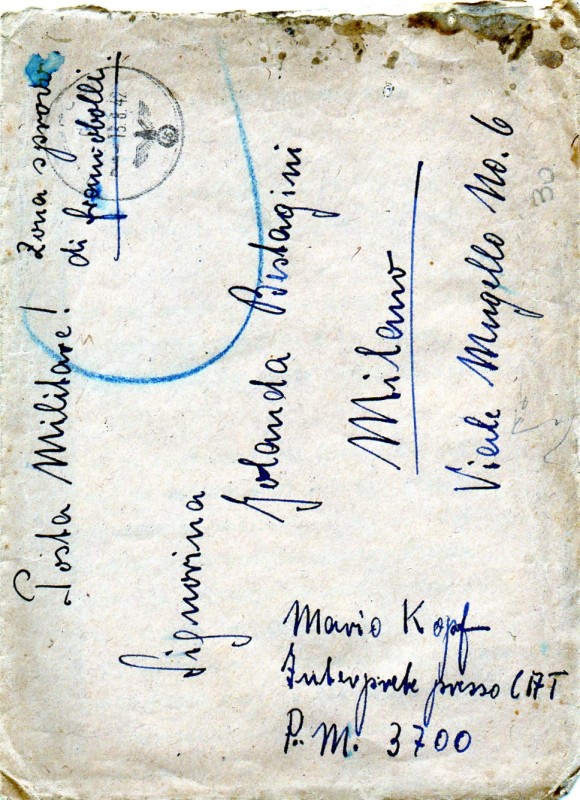 Posta Militare! Zona sprovv.
di francobolli.
13.8.42
Signorina
Jolanda Bestagini
Milano
Viale Mugello No. 6
30
Mario Kopf
Interprete presso
P. M. 3700